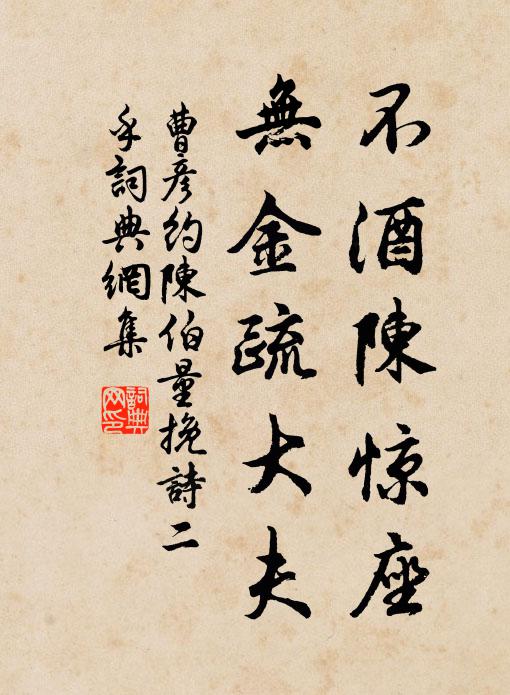 不酒陳惊座
無金疏大夫
曹彦約陳伯量挽詩二
手詞典網集
詞典網印